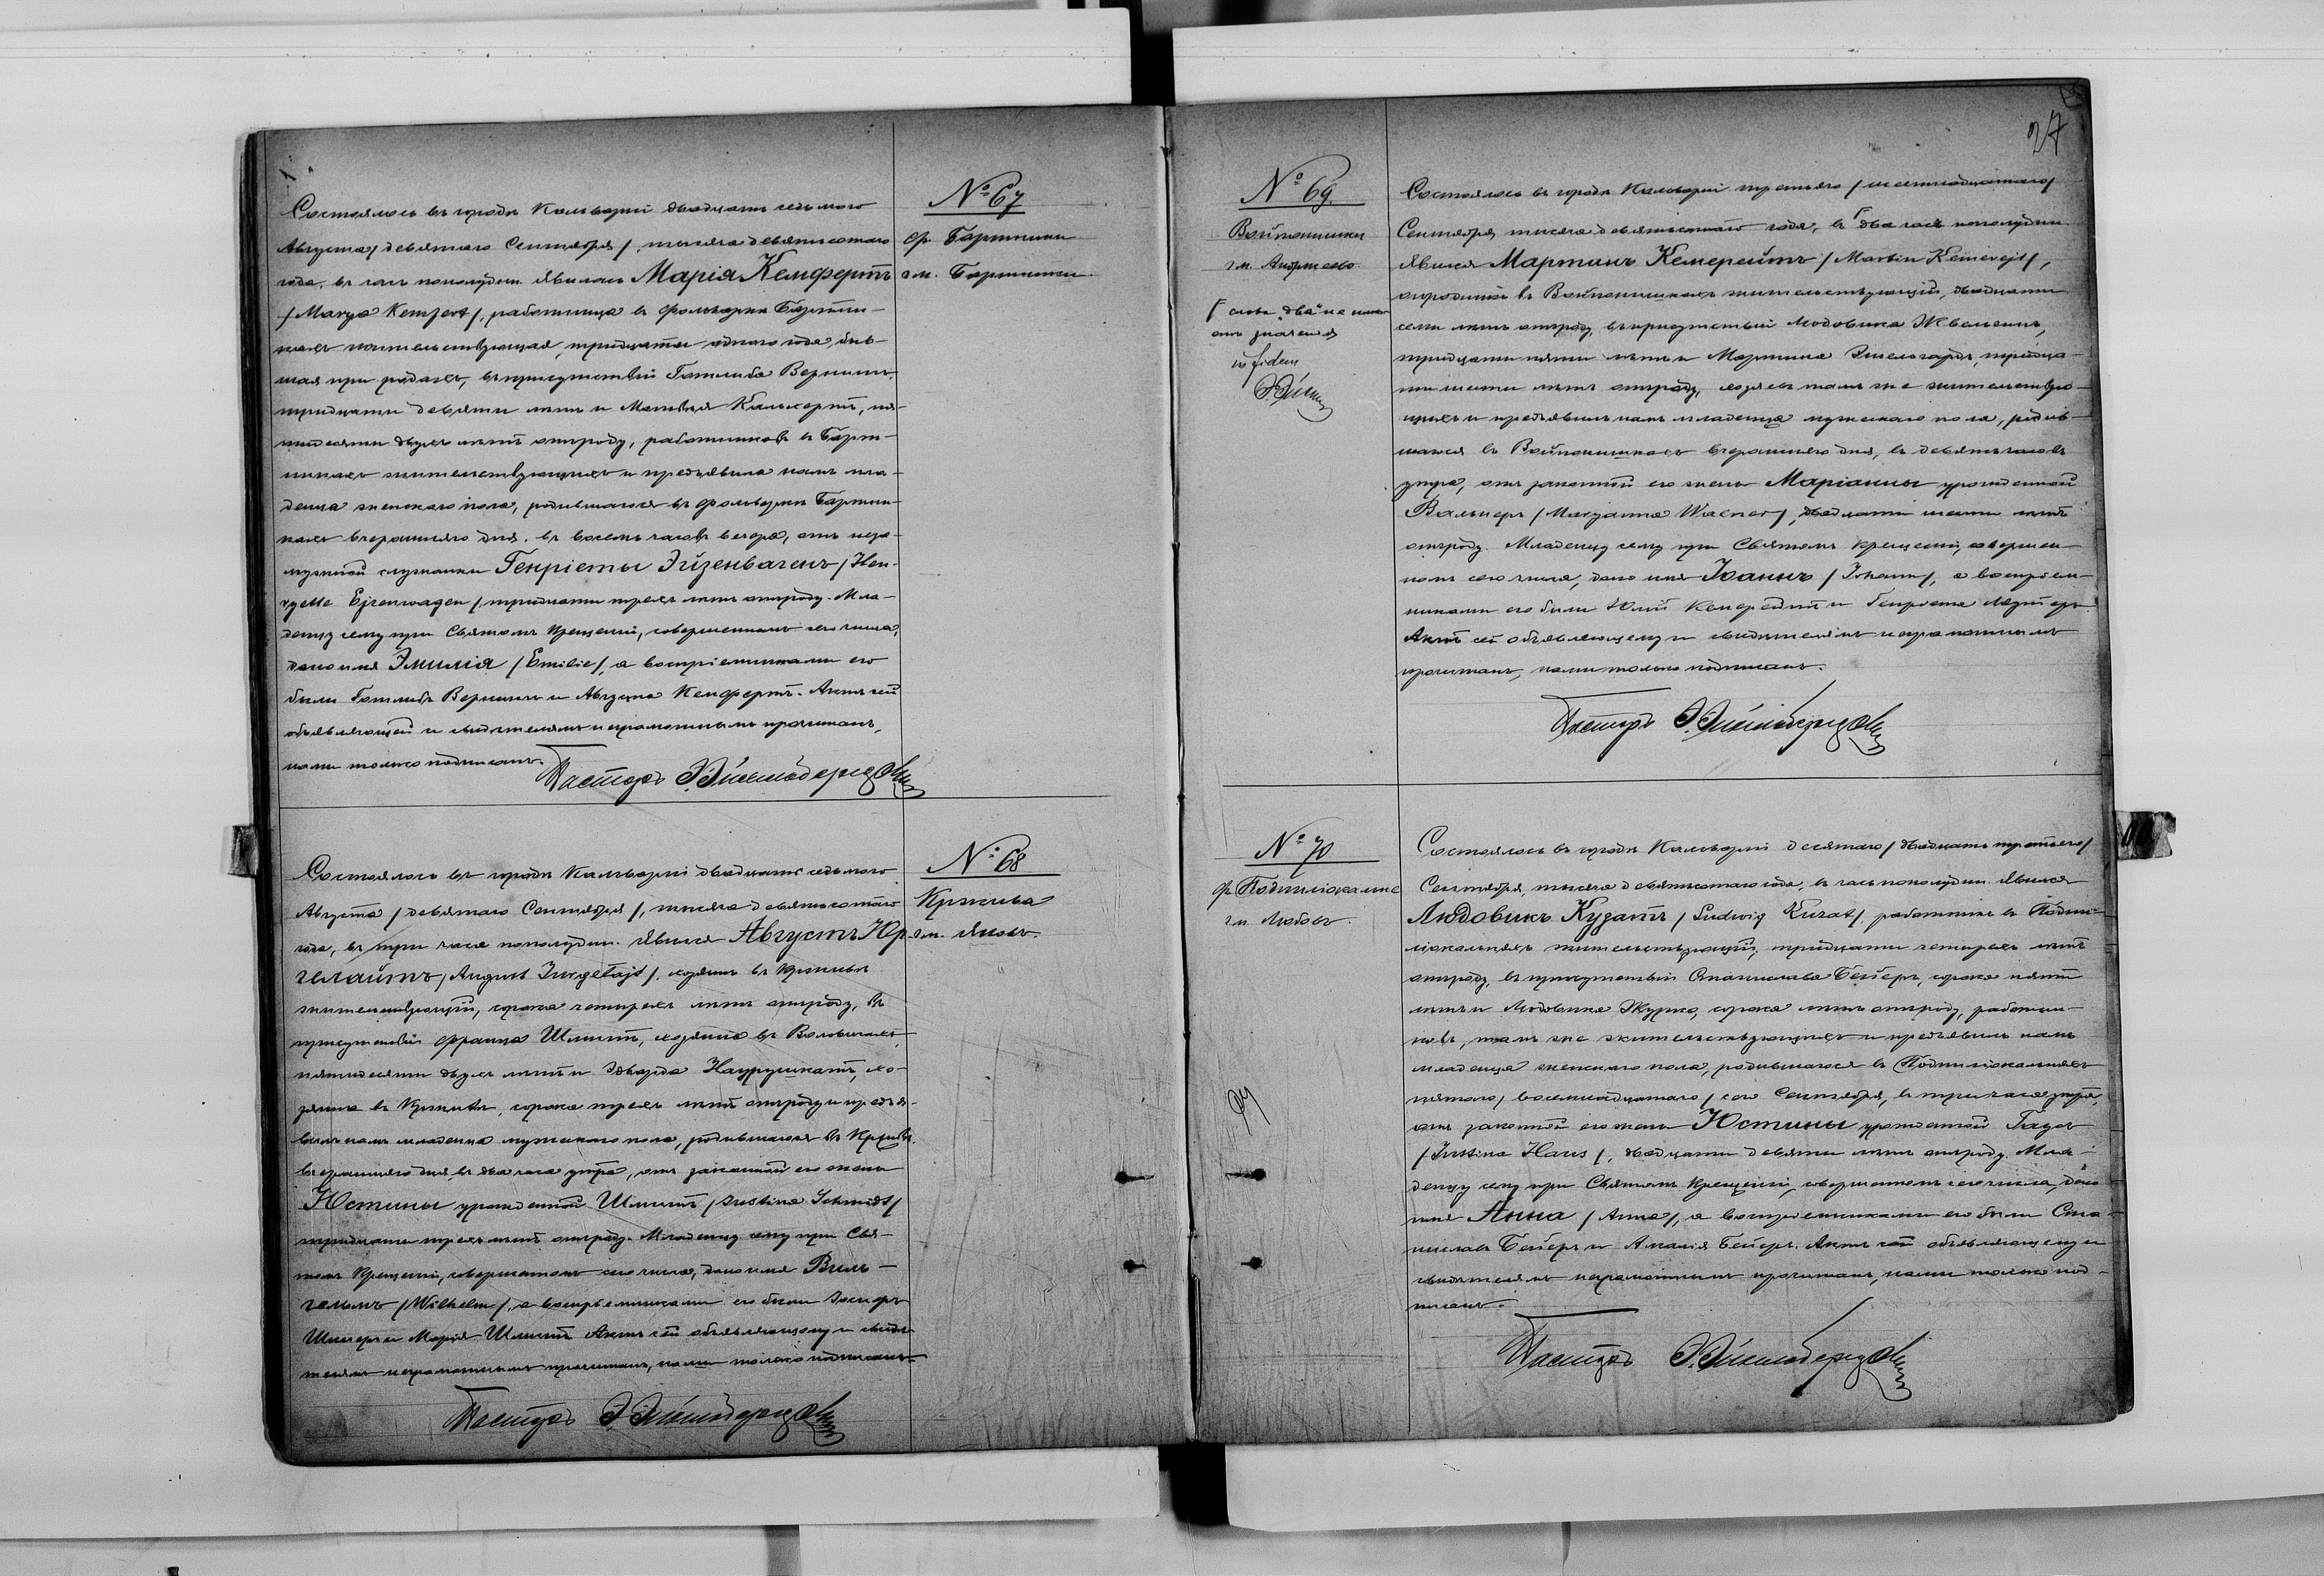 № 67
ф. Бартники
гм. Бартники
Состоялось въ городѣ Кальваріи двадцать седьмого
Августа /девятаго Сентября/, тысяча девятисотаго
года, въ часъ пополудни. Явилась Марія Кемфертъ
/Marya Kemfert/, работница въ фольваркѣ Бартни-
кахъ жительствующая, тридцати одного года, быв-
шая при родахъ, въ присутствіи Готлиба
тридцати девяти лѣтъ и Матвѣя пя-
тидесяти двухъ лѣтъ отъ роду, работниковъ въ Барт-
никахъ жительствующихъ и предъявила намъ мла-
денца женскаго пола, родившагося въ фольваркѣ Бартни-
кахъ вчерашняго дня, въ восемь часовъ вечера, отъ неза-
мужной служанки Генріеты Эйзенвагенъ /Hen-
ryette Ejzenwagen/ тридцати трехъ лѣтъ отъ роду. Мла-
денцу сему при Святомъ Крещеніи, совершенномъ сего числа,
дано имя Эмилія /Emilie/, а воспріемниками его
были Готлибъ и Августа Кемфертъ. Актъ сей
объявляющей и свидѣтелямъ неграмотнымъ прочитанъ,
нами только подписанъ.
Пасторъ
№ 68
Кржива
гм. Яновъ.
Состоялось въ городѣ Кальваріи двадцать седьмого
Августа /девятаго Сентября/, тысяча девятьсотаго
года, въ три часа пополудни. Явился Августъ Юр-
гелайтъ /August Jurgelajt/, хозяинъ въ Крживѣ
жительствующій, сорока четырехъ лѣтъ отъ роду, въ
присутствіи Франца Шмитъ, хозяина въ
пятидесяти двухъ лѣтъ и Эдварда хо-
зяина въ Крживѣ, сорока трехъ лѣтъ отъ роду и предъя-
вилъ намъ младенца мужескаго пола, родившагося въ Крживѣ
вчерашняго дня въ два часа утра, отъ законной его жены
Юстины урожденной Шмитъ /Justina Schmidt/
тридцати трехъ лѣтъ отъ роду. Младенцу сему при Свя-
томъ Крещеніи, совершенномъ сего числа, дано имя Виль-
гельмъ /Wilhelm/, а воспріемниками его были
и Марія Шмитъ. Актъ сей объявляющему и свидѣ-
телямъ неграмотнымъ прочитанъ, нами только подписанъ.
Пасторъ
27
№ 69.
гм.
слово „два“ не имѣ-
етъ значенія
in fidem
Состоялось въ городѣ Кальваріи третьяго /шестнадцатаго/
Сентября, тысяча девятьсотаго года, въ два часъ пополудни
Явился Мартинъ Кемерейтъ /Martin Kemerejt/,
жительствующій, двадцати
семи лѣтъ отъ роду, въ присутствіи Людовика
тридцати пяти лѣтъ и Мартина тридца-
ти шести лѣтъ отъ роду, хозяевъ тамъ же жительствую-
щихъ и предъявилъ намъ младенца мужескаго пола, родив-
шагося въ вчерашняго дня, въ девять часовъ
утра, отъ законной его жены Маріанны урожденной
/Maryanna Walner/, двадцати шести лѣтъ
отъ роду. Младенцу сему при Святомъ Крещеніи, совершен-
номъ сего числа, дано имя Іоаннъ /Johann/, а воспріем-
никами его были Юлій Кемерейтъ и Генріета
Актъ сей объявляющему и свидѣтелямъ неграмотнымъ
прочитанъ, нами только подписанъ.
Пасторъ
№ 70
гм. Любовъ.
Состоялось въ городѣ Кальваріи десятаго /двадцать третьяго/
Сентября, тысяча девятьсотаго года, въ часъ пополудни. Явился
Людовикъ Кузатъ /Ludwig Kuzat/ работникъ въ
жительствующій, тридцати четырехъ лѣтъ
отъ роду, въ присутствіи Станислава Бейеръ, сорока пяти
лѣтъ и Людовика сорока лѣтъ отъ роду, работни-
ковъ, тамъ же жительствующихъ и предъявилъ намъ
младенца женскаго пола, родившагося въ
пятаго /восемнадцатаго/ сего Сентября, въ три часа утра,
отъ законной его жены Юстины урожденной Гаусъ
/Justina Haus/, двадцати девяти лѣтъ отъ роду. Мла-
денцу сему при Святомъ Крещеніи, совершенномъ сего числа, дано
имя Анна /Anna/, а воспріемниками его были Ста-
ниславъ Бейеръ и Амалія Бейеръ. Актъ сей объявляющему и
свидѣтелямъ неграмотнымъ прочитанъ, нами только под-
писанъ.
Пасторъ